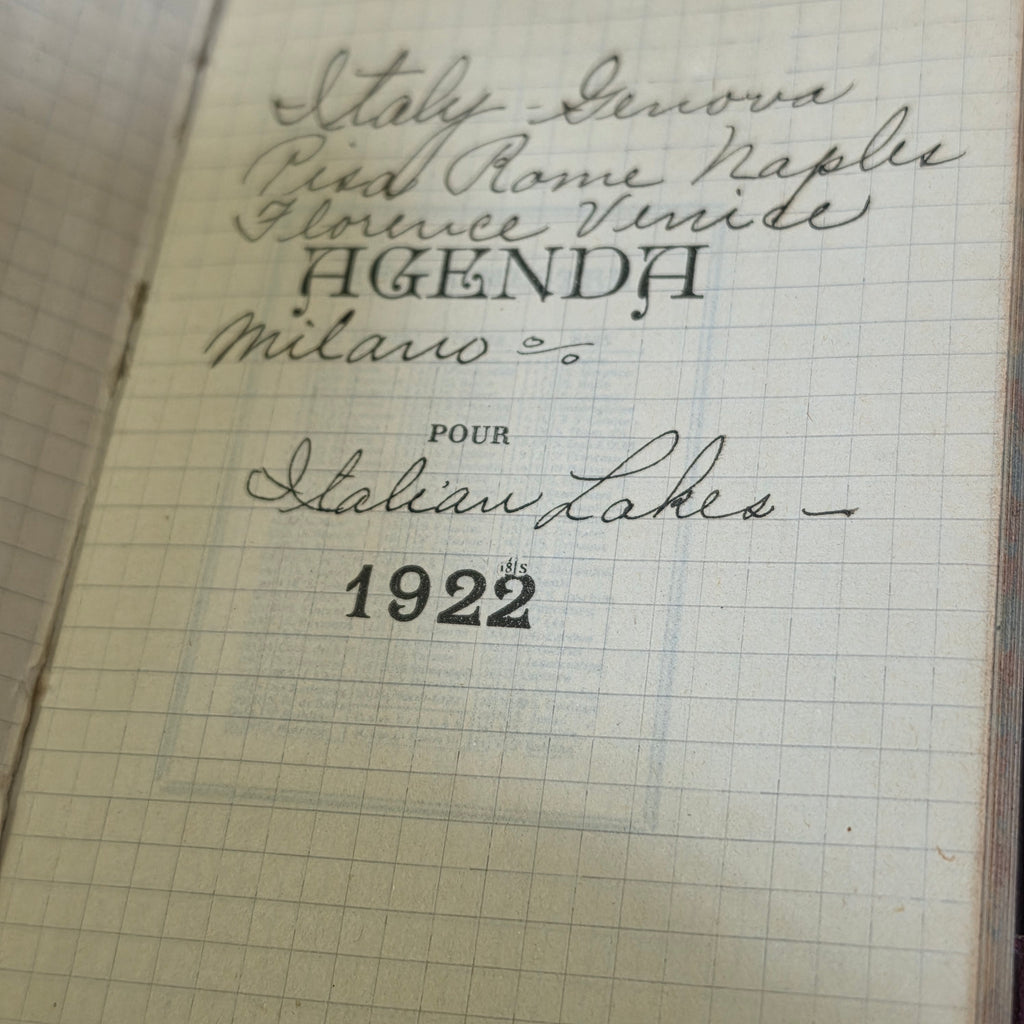 Italy - Genova
Pisa Rome Naples
Florence Venice
AGENDA
Milano
POUR
Italian Lakes -
1922